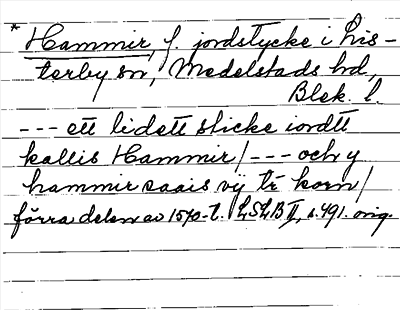 * Hammir, f. jordstycke i Lis-
terby sn, Medelstads hd,
Blek. l.
--- ett lidett sticke iordtt
kallis Hammir/ --- och y
hammir saais vij tr korn/
förra delen av 1570-t. LSLB II, s. 491. orig.